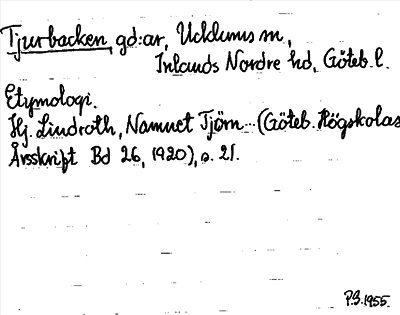 Tjurbacken, gd:ar, Ucklums sn,
Inlands Nordre hd, Göteb. l.
Etymologi.
Hj. Lindroth, Namnet Tjörn... (Göteb. Högskolas
Årsskrift Bd 26, 1920), s. 21.
P.B. 1955.